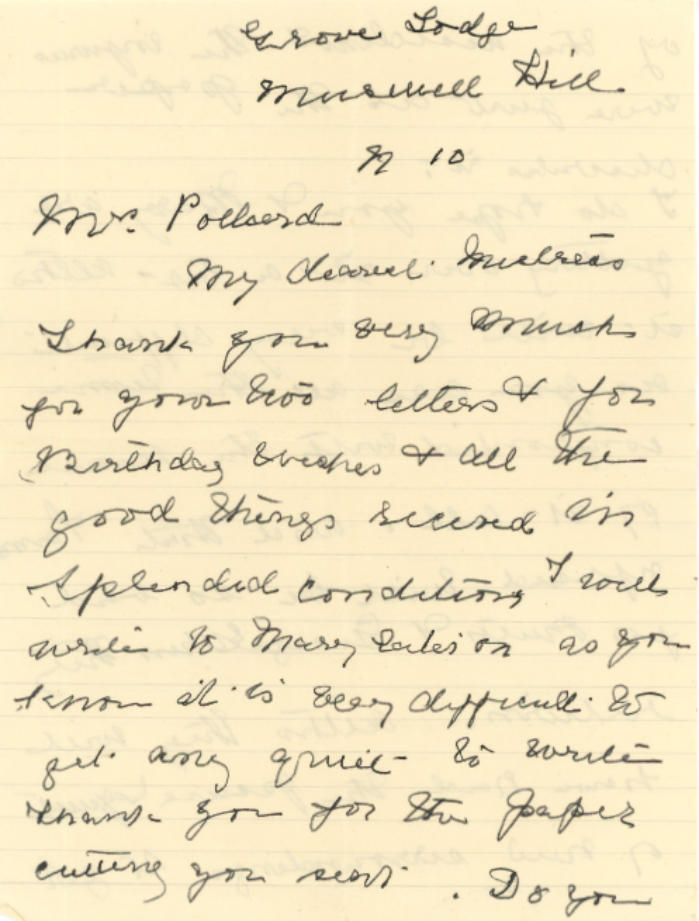 Grove Lodge
Muswell Hill.
N 10
Mrs. Pollard
My dearest
Thank you very much
for your two letters & for
Birthday wishes & all the
good things received in
splendid condition, I will
write to Mary later on as you
know it is very difficult to
get any quiet to write
thank you for the paper
cutting you sent. Do you